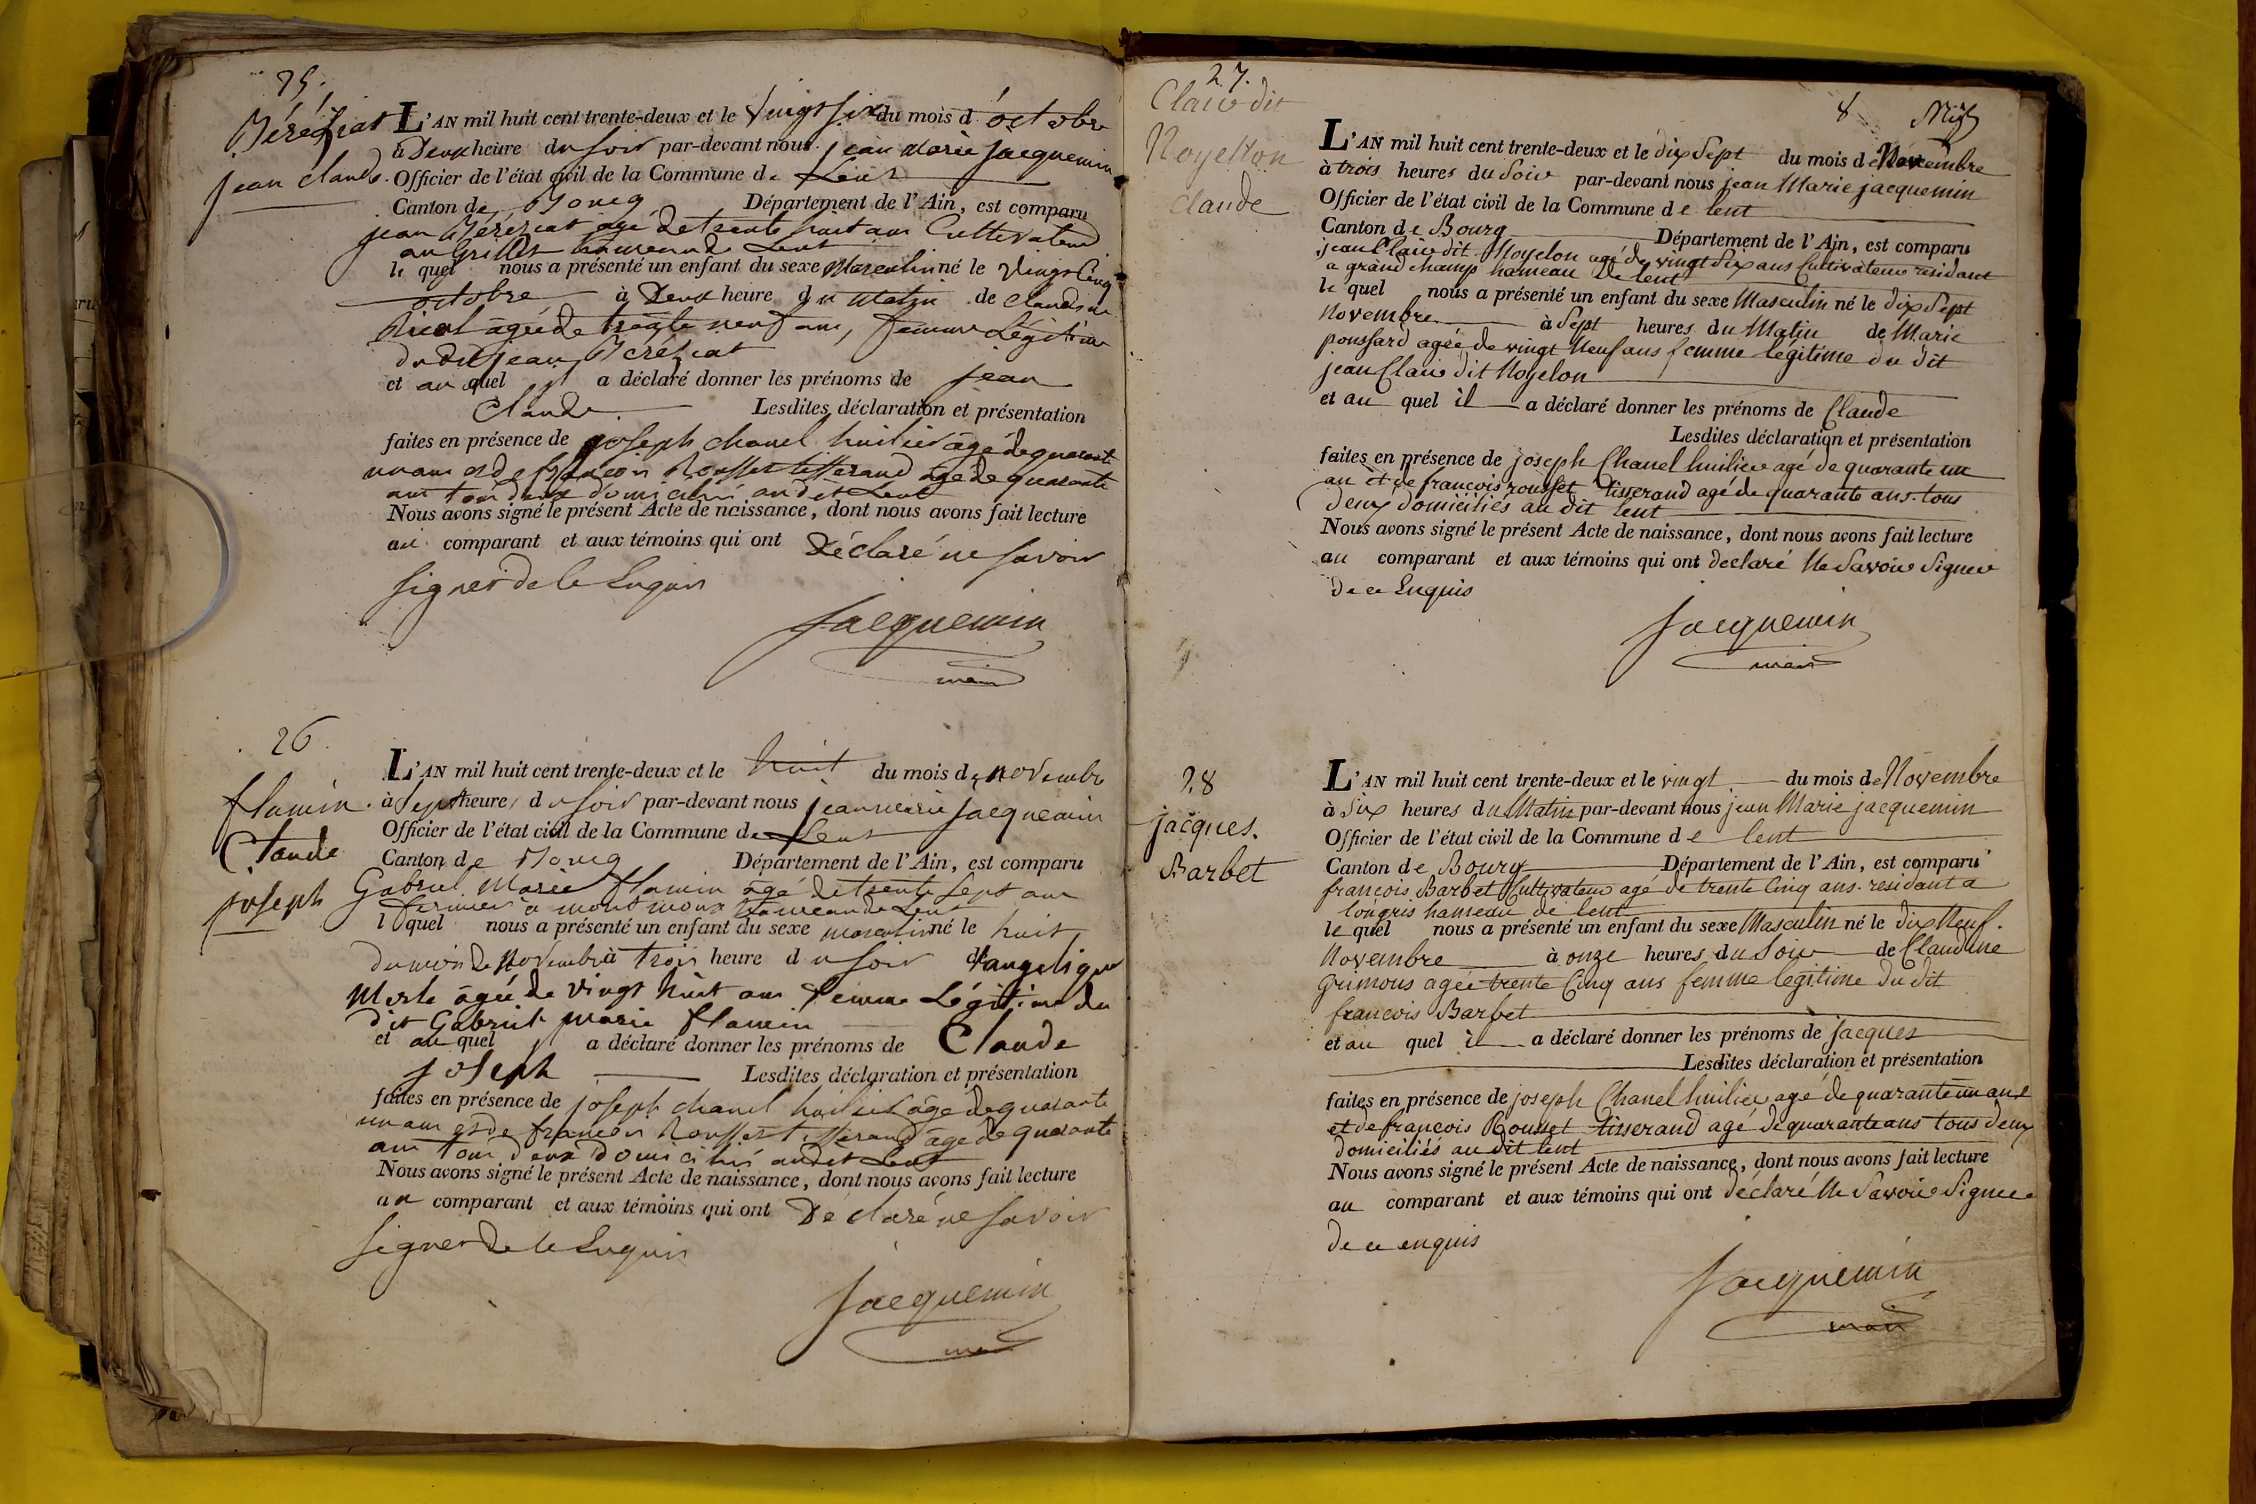 25.
Béréziat
jean claude.
L'AN mil huit cent trente-deux et le vingt six du mois d'octobre
à Deux heure du soir par-devant nous jean marie jacquemin
Officier de l'état civil de la Commune de Lent
Canton de Bourg Département de l'Ain, est comparu
jean Béréziat agé de trente huit ans Cultivateur
au Grillet hameau de Lent
le quel nous a présenté un enfant du sexe Masculin né le vingt Cinq
octobre à Deux heure du Matin de Claudine
âgée de trente neuf ans, femme Légitime
du dit jean Béréziat
et au quel il a déclaré donner les prénoms de jean
Claude. Lesdites déclaration et présentation
faites en présence de joseph chanel huilier âgé de quarante
un ans et de françois Rousset tisserand âgé de quarante
ans tous deux domiciliés au dit Lent
Nous avons signé le présent Acte de naissance, dont nous avons fait lecture
au comparant et aux témoins qui ont Déclaré ne savoir
signer de le Enquis
Jacquemin
maire
26
flamin.
Claude
joseph
L'AN mil huit cent trente-deux et le huit du mois de novembre
à sept heures du soir par-devant nous jean marie jacquemin
Officier de l'état civil de la Commune de Lent
Canton de Bourg Département de l'Ain, est comparu
Gabriel Marie flamin âgé de trente sept ans
fermier a montmoux hameau de Lent
le quel nous a présenté un enfant du sexe masculin né le huit
du mois de Novembre à trois heure du soir d'angelique
Merle âgée de vingt huit ans femme Légitime du
dit Gabriel marie flamin
et au quel il a déclaré donner les prénoms de Claude
joseph Lesdites déclaration et présentation
faites en présence de joseph chanel huilier âgé de quarante
un ans et de françois Rousset tisserand âgé de quarante
ans tous deux domiciliés audit Lent
Nous avons signé le présent Acte de naissance, dont nous avons fait lecture
au comparant et aux témoins qui ont Déclaré ne savoir
signer de le Enquis
Jacquemin
27.
Claiv dit
Noyelton
claude
8
L'AN mil huit cent trente-deux et le dix Sept du mois de Novembre
à trois heures du Soir par-devant nous jean Marie jacquemin
Officier de l'état civil de la Commune de lent
Canton de Bourg Département de l'Ain, est comparu
jean Claiv dit Noyelon agé de vingt Six ans Cultivateur residant
a grand champ hameau De lent
le quel nous a présenté un enfant du sexe Masculin né le dix Sept
Novembre à Sept heures du Matin de Marie
poussard agée de vingt Neuf ans femme legitime du dit
jean Claiv dit Noyelon
et au quel il a déclaré donner les prénoms de Claude
Lesdites déclaration et présentation
faites en présence de joseph Chanel huilier agé de quarante un
an et de françois rousset tisserand agé de quarante ans. tous
deux domiciliés au dit lent
Nous avons signé le présent Acte de naissance, dont nous avons fait lecture
au comparant et aux témoins qui ont declaré Ne Savoir Signer
De ce Enquis
Jacquemin
maire
28
jacques.
Barbet
L'AN mil huit cent trente-deux et le vingt du mois de Novembre
à Six heures du Matin par-devant nous jean Marie jacquemin
Officier de l'état civil de la Commune de lent
Canton de Bourg Département de l'Ain, est comparu
françois Barbet Cultivateur agé de trente Cinq ans. residant a
longris hameau de lent
le quel nous a présenté un enfant du sexe Masculin né le dix Neuf.
Novembre à onze heures du Soir de Claudine
Grimous agée trente Cinq ans femme legitime Du dit
françois Barbet
et au quel il a déclaré donner les prénoms de jacques
Lesdites déclaration et présentation
faites en présence de joseph Chanel huilier agé de quarante un ans
et de françois Rousset tisserand agé de quarante ans tous deux
domiciliés au dit lent
Nous avons signé le présent Acte de naissance, dont nous avons fait lecture
au comparant et aux témoins qui ont déclaré Ne Savoir Signer
de ce enquis
Jacquemin
maire